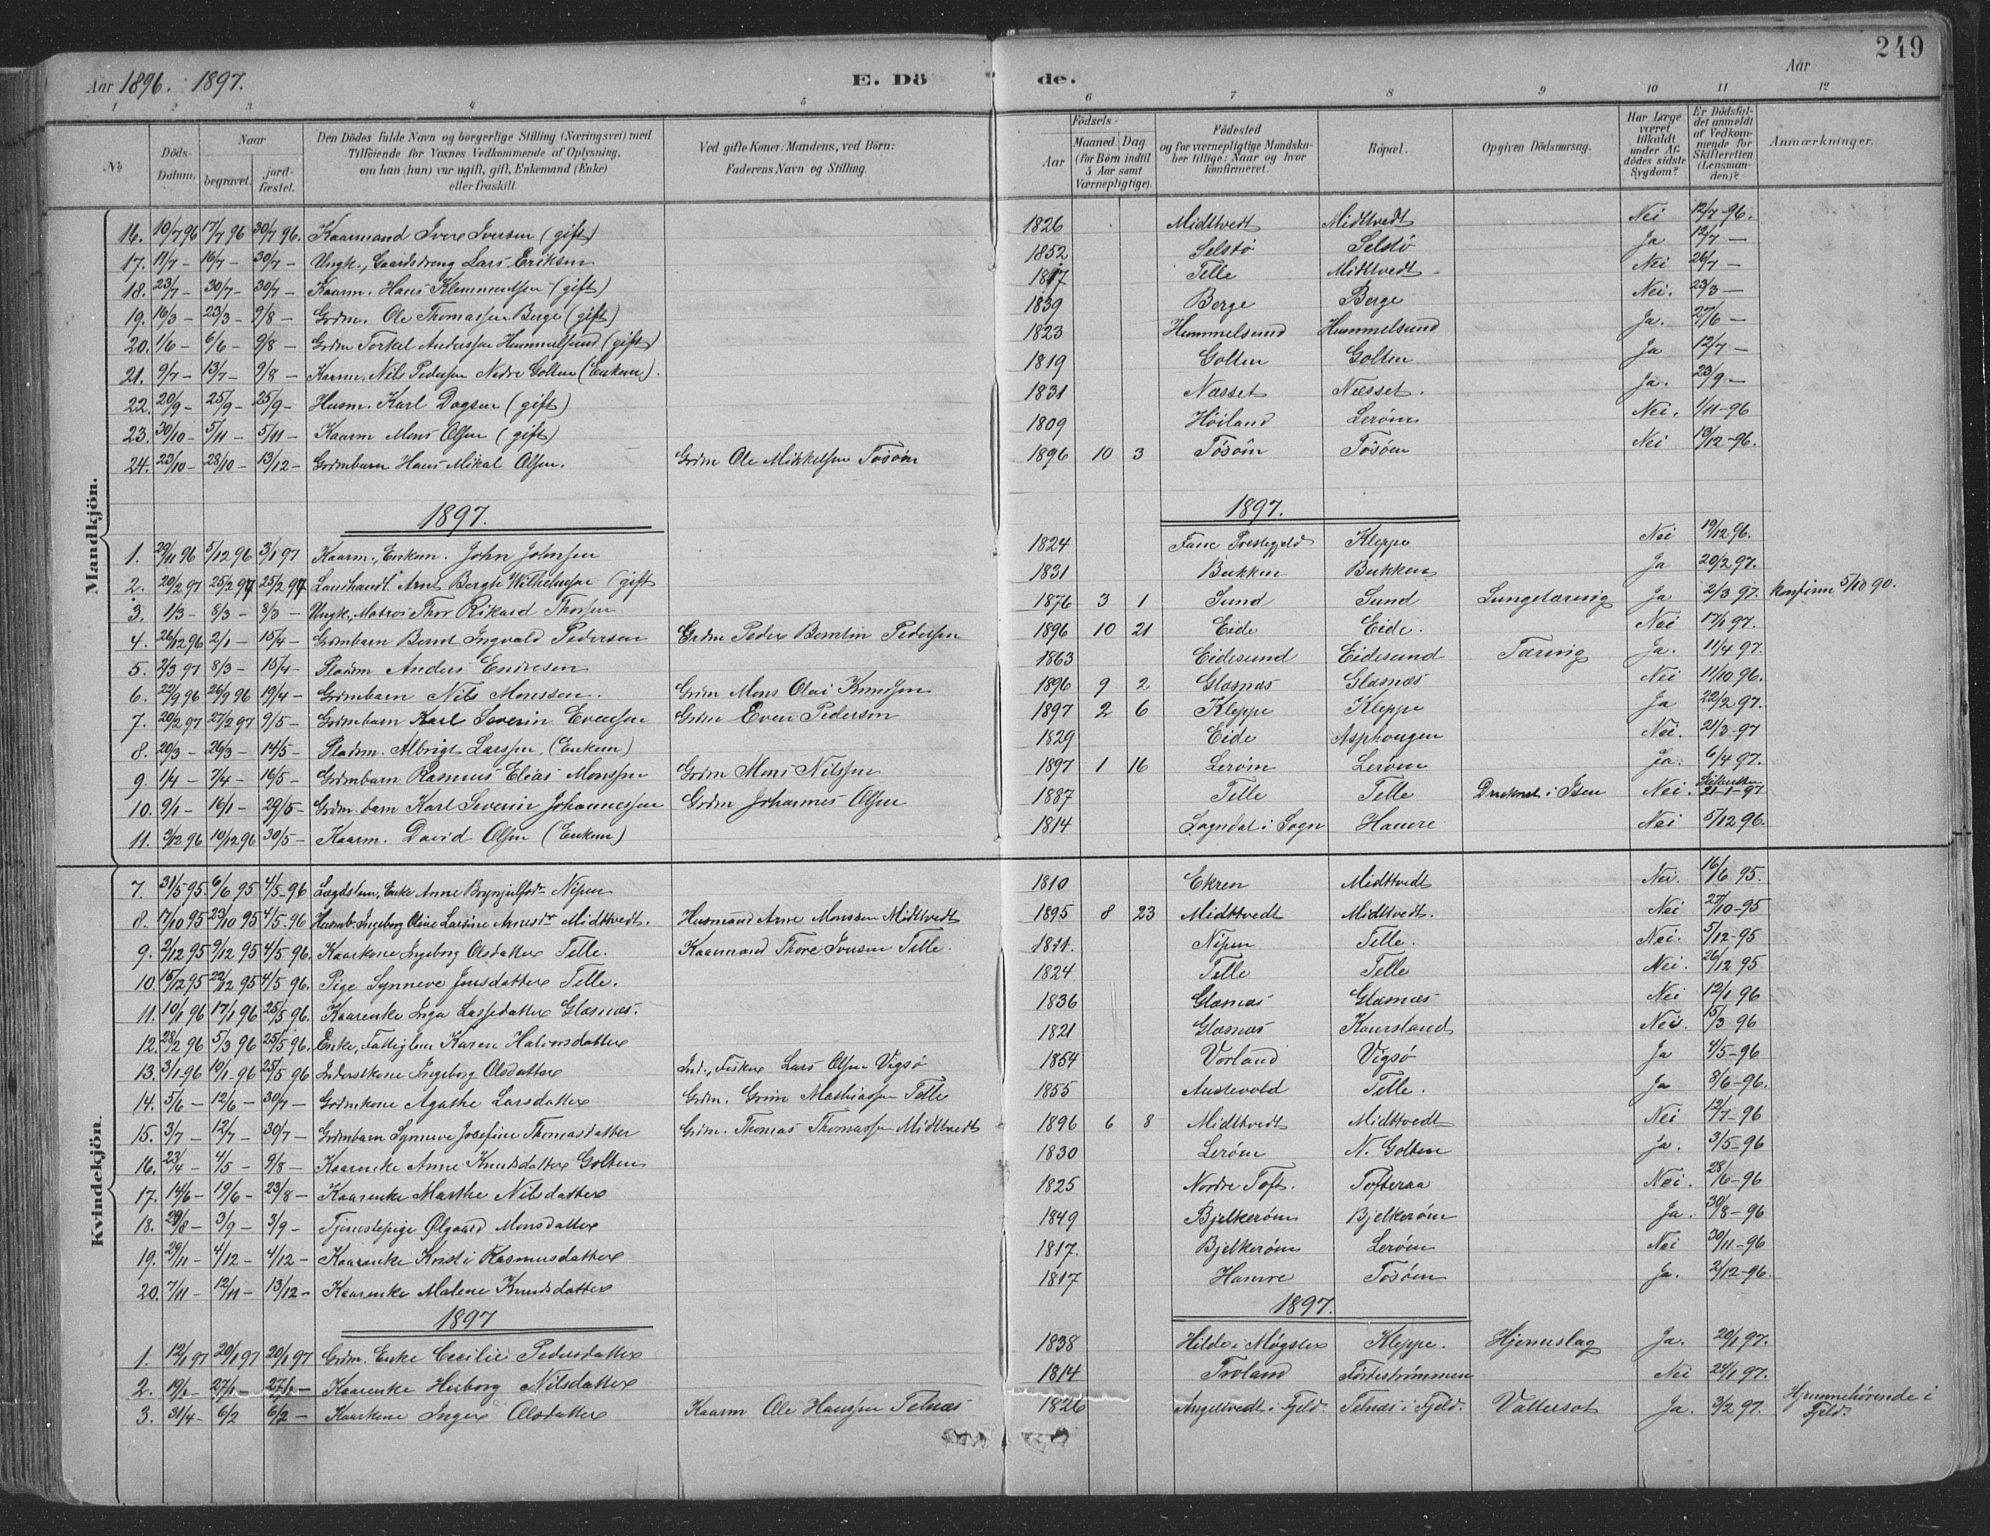 249
Aar 1896. 1897. E. Dö de. Aar
1 2 3 4 5 6 7 8 9 10 11 12
№ Döds-Datum. Naar begravet. jordfæstet. Den Dödes fulde Navn og borgerlige Stilling (Næringsvei) med Tilföiende for Voxnes Vedkommende af Oplysning, om han (hun) var ugift, gift, Enkemand (Enke) eller fraskilt. Ved gifte Koner: Mandens, ved Börn: Faderens Navn og Stilling. Födsels- Aar Maaned Dag (for Börn indtil 5 Aar samt Værnepligtige). Födested og for værnepligtige Mandskaber tillige: Naar og hvor konfirmeret. Bopæl. Opgiven Dödsaarsag. Har Læge været tilkaldt under Afdödes sidste Sygdom? Er Dödsfaldet anmeldt af Vedkommende for Skifteretten (Lensmanden)? Anmærkninger.
Mandkjön.
16. 10/7 96 17/7 96 30/7 96. Kaarmand Iver Iversen (gift) 1826 Midttvedt Midttvedt Nei 12/7 -96.
17. 11/7 - 16/7 - 30/7 - Ungk., Gaardsdreng Lars Eriksen 1852 Selstø Selstø Ja 12/7 -
18. 23/7 - 30/7 - 30/7 - Kaarm. Hans Klemmentsen (gift) 1817 Telle Midttvedt Nei 26/7 -
19. 16/3 - 23/3 - 9/8 - Grdm. Ole Thomassen Berge (gift) 1839 Berge Berge Nei. 23/3 -
20. 1/6 - 6/6 - 9/8 - Grdm Torkel Anderssen Hummelsund (gift) 1823 Hummelsund Hummelsund Ja. 27/6 -
21. 9/7 - 13/7 - 9/8 - Kaarm. Nils Pedersen Nedre Golten (Enkem). 1819 Golten Golten Ja 12/7 -
22. 20/9 - 25/9 - 25/9 - Husm. Karl Dagsen (gift) 1831 Næsset Næsset. Ja. 23/9 -
23. 30/10 - 5/11 - 5/11 - Kaarm Mons Olsen (gift) 1809 Höiland Lerøm Nei. 1/11 -96
24. 23/10 - 28/10 - 13/12 - Grdmbarn Hans Mikal Olsen. Grdm Ole Mikkelsen Tøsøm 1896 10 3 Tøsøm Tøsøm Nei 13/12 -96.
1897. 1897.
1. 29/11 96 5/12 96 3/1 97 Kaarm., Enkem. John Johnsen 1824 Fane Prestegjeld Kleppe Nei 19/12 96.
2. 20/2 97 25/2 97 25/2 97 Landhandl. Arnt Bergh Wilhelmsen (gift 1831 Bukken Bukken Ja 20/2 97.
3. 1/3 - 8/3 - 8/3 - Ungk., Matros Thor Rikard Thorsen 1876 3 1 Sund Sund Lungetæring Ja 2/3 97. konfirm 5/10 90.
4. 26/12 96 2/1 - 15/4 - Grdmbarn Bernt Ingvald Pedersen Grdm Peder Berntin Pedersen 1896 10 21 Eide Eide. Nei 17/1 97.
5. 2/3 97 8/3 - 15/4 - Pladsm Anders Endresen 1863 Eidesund Eidesund Tæring Ja. 11/4 97.
6. 22/9 96 26/9 96 19/4 - Grdmbarn Nils Monssen. Grdm Mons Olai Knudsen 1896 9 2 Glæsnæs Glæsnæs Nei 11/10 96.
7. 20/2 97 27/2 97 9/5 - Grdmbarn Karl Severin Evensen Grdm Even Pedersen 1897 2 6 Kleppe Kleppe Ja 22/2 97.
8. 20/3 - 26/3 - 14/5 - Pladsm. Albrigt Larssen. (Enkem) 1829 Eide Asphougen Nei. 21/3 -97
9. 1/4 - 7/4 - 16/5 - Grdmbarn Rasmus Elias Monssen Grdm Mons Nilssen 1897 1 16 Lerøm Lerøm Ja. 6/4 97.
10. 9/1 - 16/1 - 29/5 - Grdm. barn Karl Severin Johannessen Grdm Johannes Olsen 1887 Telle Telle Druknet i Isen Nei. 21-1-97
11. 3/12 96 10/12 96 30/5 - Kaarm. David Olsen (Enkem) 1814 Sogndal i Sogn Hamre Nei 5/12 96.
Kvindekjön.
7. 31/5 95. 6/6 95 4/5 -96 Lægdslem, Enke Anne Brynjulfsdr Nipen 1810 Ekren Midttvedt Nei. 16/6 95.
8. 17/10 95 23/10 95 4/5 -96 Husmb. Ingeborg Oline Larsine Arnesdr Midttvedt. Husmand Arne Monssen Midttvedt 1895 8 23 Midttvedt Midttvedt. Nei 27/10 -95
9. 2/12 95 9/12 95 4/5 96. Kaarkone Ingeborg Olsdatter Telle. Kaarmand Thore Iversen Telle. 1811. Nipen Telle. Nei. 5/12 -95
10. 15/12 95 22/12 95 4/5 96. Pige Synneve Jonsdatter Telle. 1824 Telle Telle Nei. 26/12 95
11. 10/1 96 17/1 96 25/5 96. Kaarenke Inga Lassedatter Glæsnæs. 1836 Glæsnæs Glæsnæs Nei 12/1 96
12. 28/2 96 5/3 96 25/5 96. Enke, Fattiglem Karen Halvorsdatter 1821 Glæsnæs Kaursland Nei. 15/3 96
13. 3/1 96 10/1 96 25/5 96 Inderstkone Ingeborg Olsdatter Ind., Fisker Lars Olsen Vigsø 1854 Vorland Vigsø Ja 4/5 -96
14. 5/6 - 12/6 - 30/7 - Grdmkone Agathe Larsdatter Grdm. Grim Mathiassen Telle 1855 Austevold Telle. Ja 8/6 -96.
15. 3/7 - 12/7 - 30/7 - Grdmbarn Synneve Josefine Thomasdatter Grdm. Thomas Thomassen Midttvedt 1896 6 8 Midttvedt Midttvedt Nei 12/7 -96
16. 23/4 - 4/5 - 9/8 - Kaarenke Anne Knudsdatter Golten 1830 Lerøm N. Golten Ja. 3/5 -96
17. 14/6 - 19/6 - 23/8 - Kaarenke Marthe Nilsdatter 1825 Nordre Toft. Tofteraa Nei. 28/6 -96
18. 29/8 - 3/9 - 3/9 - Tjenestepige Olgaard Monsdatter 1849 Bjelkerøm Bjelkerøm Ja. 30/8 -96
19. 29/11 - 4/12 - 4/12 - Kaarenke Kristi Rasmusdatter 1817. Bjelkerøm Lerøm Nei 30/11 -96
20. 7/11 - 12/11 - 13/12 - Kaarenke Malene Knudsdatter 1817 Hamre Tøsøm Ja. 2/12 -96.
1897 1897.
1. 12/1 97 20/1 97 20/1 97 Grdm. Enke Cecilie Pedersdatter 1838 Hilde i Møgster Kleppe. Hjerneslag Ja. 20/1 97.
2. 19/1 - 27/1 - 27/1 - Kaarenke Herborg Nilsdatter 1814 Troland Førdestrømmen Nei 24/1 97.
3. 31/4 - 6/2 6/2 - Kaarkone Inger Olsdatter Kaarm Ole Hanssen Telnæs 1826 Angeltvedt i Fjeld. Telnæs i Fjeld. Vattersot Ja. 3/2 97. Hjemmehørende i Fjeld.